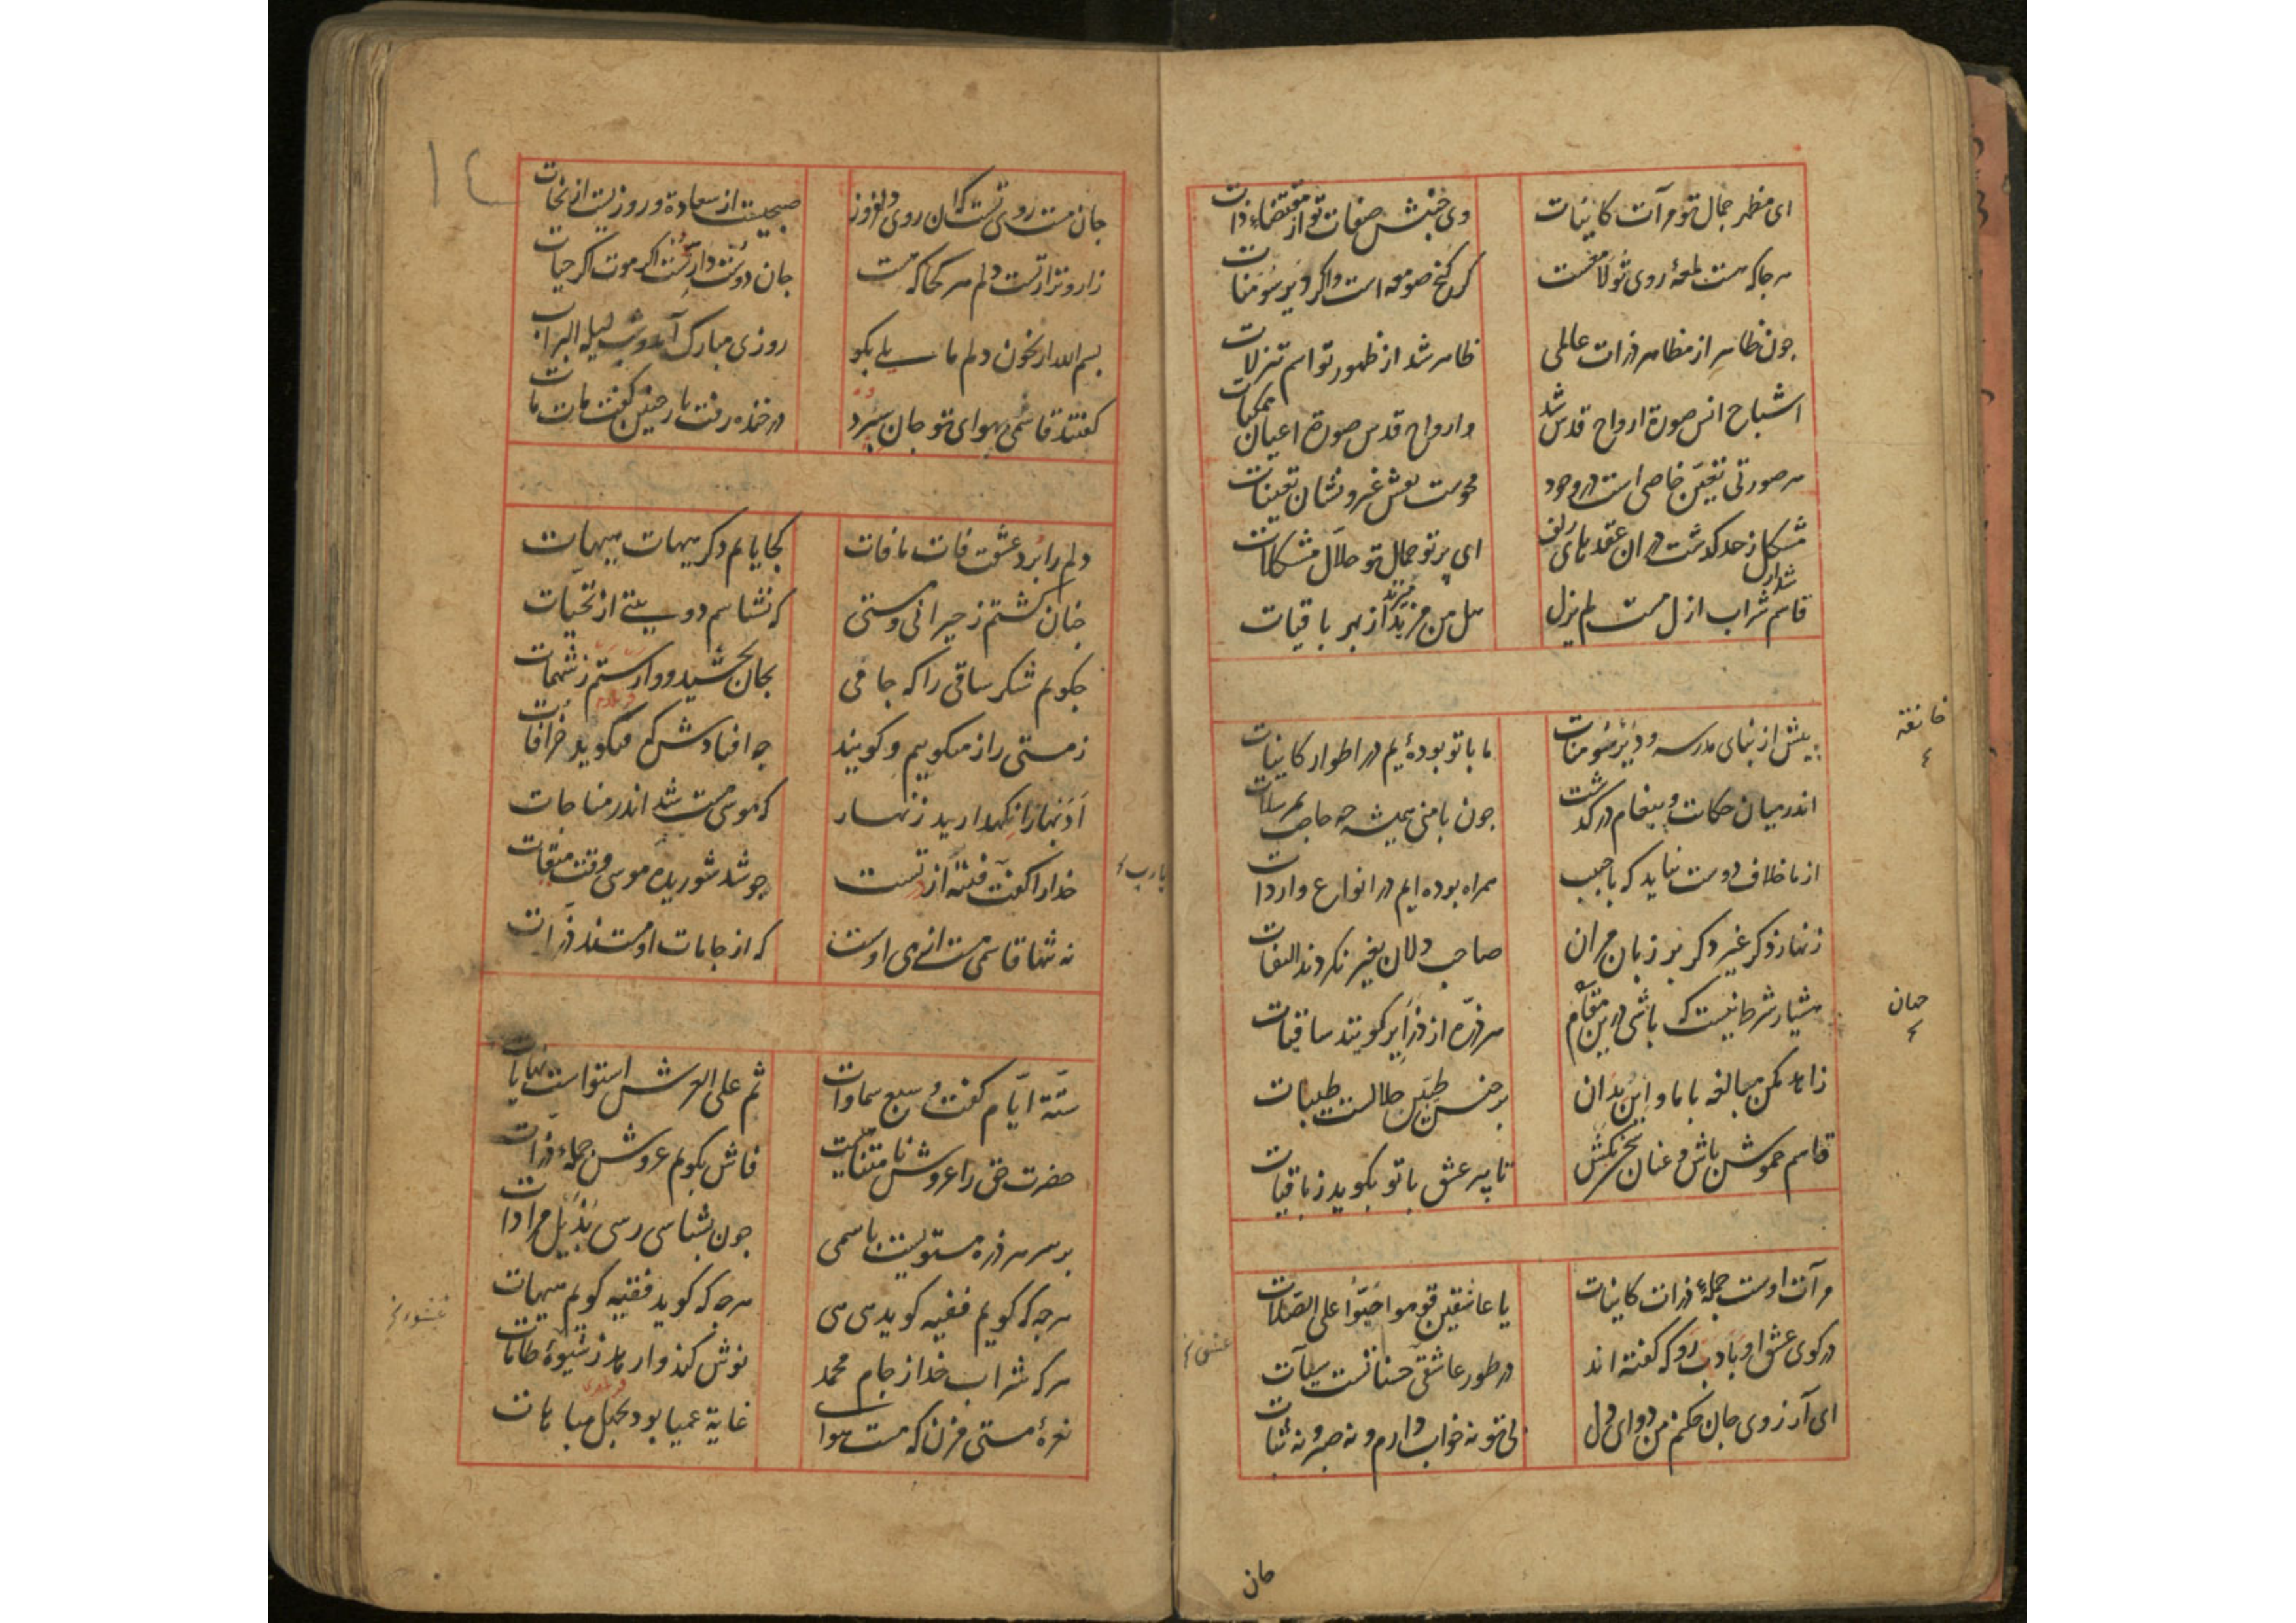 ای مظهر جمال تو مرآت کاینات وی جنبش صفات تو از مقتضاء ذات
هر جا که هست لمعهٔ روی تو لامعست کر کنج صومعه است واکر دیر سومنات
چون ظاهر از مظاهر ذرات عالمی ظاهر شد از ظهور تو اسم تنزلات
اشباح انس صورة ارواح قدس شد وارواح قدس صورة اعیان ممکنات
هر صورتی تعین خاصی است در وجود محوست نعش غیر و نشان تعینات
مشکل ز حد کذشت در ان عقدهای زلف ای پرتو جمال تو حلال مشکلات
قاسم شراب ازل مست لم یزل هل من مزید از بهر باقیات
پیش از بنای مدرسه و دیر سومنات ما با تو بوده‌ٔیم در اطوار کاینات
خانقه
اندر میان حکایت و پیغام در کذشت چون با منی همیشه چه حاجت بمرسلات
از ما خلاف دوست نیاید که با حبیب همراه بوده ایم در انواع واردات
زنهار ذکر غیر دکر بر زبان مران صاحب دلان بغیر نکردند التفات
هشیار شرط نیست که باشی درین مقام هر ذره از ذرایر کویند ساقیات
جهان
زاهد مکن مبالغه با ما و این بدان بر جنس طیبین حلالست طیبات
قاسم خموش باش و عنان سخن بکش تا پیر عشق با تو بکوید ز باقیات
مرآت اوست جملهٔ ذرات کاینات یا عاشقین قوموا حیوا علی الصلات
در کوی عشق او بادب رو که کفته اند در طور عاشقی حسناتست سیآت
عشق
ای آرزوی جان حکم من دوای دل بی تو نه خواب دارم و نه صبر و نه ثبات
جان
١٤
جان مست روی تست که ان روی دلفروز صبحیست از سعادة و روزیست از نجات
زار و نزار تست دلم هر کجا که هست جان دوستدار تست اکر موت اکر حیات
بسم الله ار بخون دلم مایلی بکو روزی مبارک آمد و شب لیله البرات
کفتند قاسمی بهوای تو جان سپرد در خنده رفت یار و چنین کفت مات مات
دلم را برد عشقت فات مافات کجا یابم دکر هیهات هیهات
چنان کشتم ز حیرانی و مستی که نشناسم دو بیتی از تحیات
چکویم شکر ساقی را که جامی بجان بخشید و وارستم ز شبهات
ز مستی راز میکوییم و کویند چه افتادش که میکوید خرافات
ادبها را نکهدارید زنهار که موسی مست شد اندر مناجات
خدا را کفت فتنه از تست چو شد شوریده موسی وقت میقات
یارب
نه تنها قاسمی مست از می اوست که از جامات او مستند ذرات
ستة ایام کفت و سبع سماوات ثم علی العرش استواست نهایات
حضرت حق را عروش نامتناهیست فاش بکویم عروش جملهٔ ذرات
بر سر هر ذره مستویست باسمی چون بشناسی رسی بذیل مرادات
هر چه که کویم فقیه کوید هی هی هر چه که کوید فقیه کویم هیهات
هر که شراب خدا ز جام محمد نوش کند وارهد ز شیوهٔ طامات
نعرهٔ مستی مزن که مست هوا غایة عمیا بود بجهل مباهات